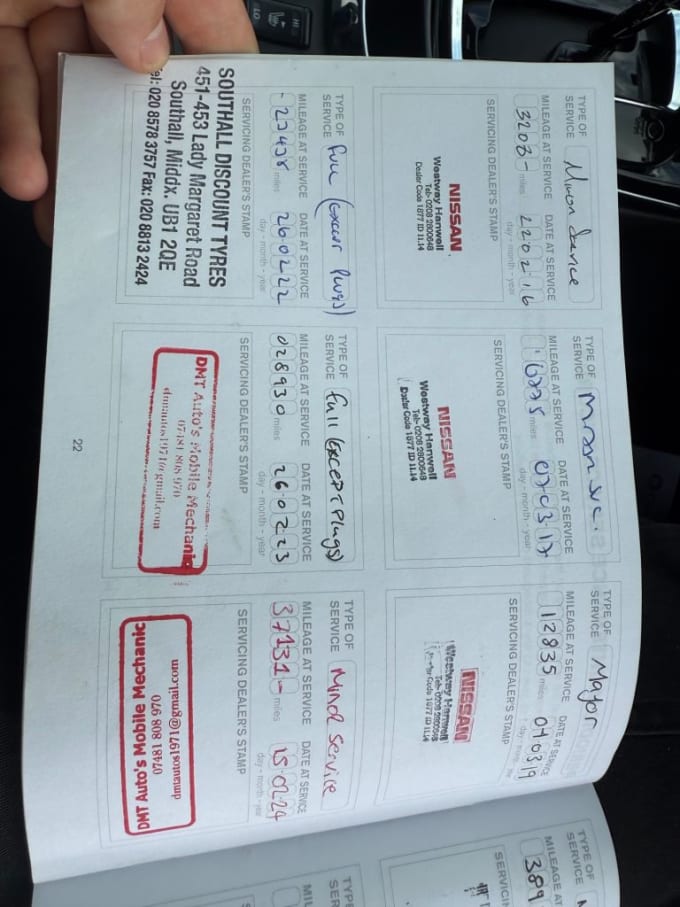 TYPE OF
SERVICE
Minor Service
MILEAGE AT SERVICE
DATE AT SERVICE
miles
22 02 16
day - month - year
SERVICING DEALER'S STAMP
NISSAN
Westway Hanwell
Tel: 0208 2800648
Dealer Code 1877 ID 11.14
TYPE OF
SERVICE
MILEAGE AT SERVICE
DATE AT SERVICE
miles
07 03 17
day - month - year
SERVICING DEALER'S STAMP
NISSAN
Westway Hanwell
Tel: 0208 2800648
Dealer Code 1877 ID 11.14
TYPE OF
SERVICE
Major
MILEAGE AT SERVICE
DATE AT SERVICE
12835
miles
04 03 19
SERVICING DEALER'S STAMP
NISSAN
Westway Hanwell
Tel: 0208 2800648
Code 1877 ID 11.14
TYPE OF
SERVICE
Full (except Plugs)
MILEAGE AT SERVICE
DATE AT SERVICE
- 23438
miles
26 02 22
day - month - year
SERVICING DEALER'S STAMP
SOUTHALL DISCOUNT TYRES
451-453 Lady Margaret Road
Southall, Middx. UB1 2QE
el: 020 8578 3757 Fax: 020 8813 2424
TYPE OF
SERVICE
full (except plugs)
MILEAGE AT SERVICE
DATE AT SERVICE
028930
miles
26 02 23
day - month - year
SERVICING DEALER'S STAMP
DMT Auto's Mobile Mechanic
07481 808 970
dmtautos1971@gmail.com
TYPE OF
SERVICE
MILEAGE AT SERVICE
DATE AT SERVICE
37131-
miles
15 02 24
day - month - year
SERVICING DEALER'S STAMP
DMT Auto's Mobile Mechanic
07481 808 970
dmtautos1971@gmail.com
22
TYPE OF
SERVICE
MILEAGE AT
389
SERVICIN
TYPE
SERV
MIL
SE
HI
LO